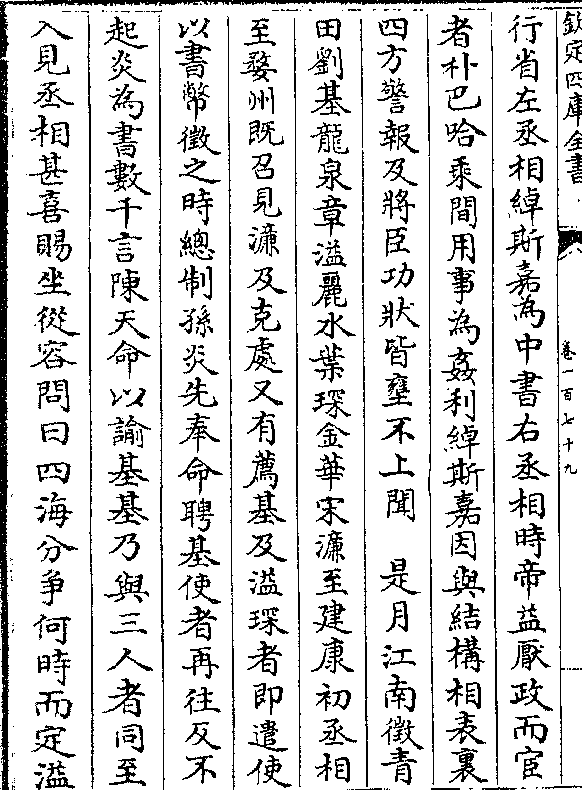 欽定四庫全書
卷一百七十九
行省左丞相綽斯嘉為中書右丞相時帝益厭政而宦
者朴巴哈乘間用事為姦利綽斯嘉因與結構相表裏
四方警報及將臣功狀皆壅不上聞　是月江南徵青
田劉基龍泉章溢麗水葉琛金華宋濂至建康初丞相
至婺州既召見濂及克處又有薦基及溢琛者即遣使
以書幣徵之時總制孫炎先奉命聘基使者再往反不
起炎為書數千言陳天命以諭基基乃與三人者同至
入見丞相甚喜賜坐從容問曰四海分爭何時而定溢